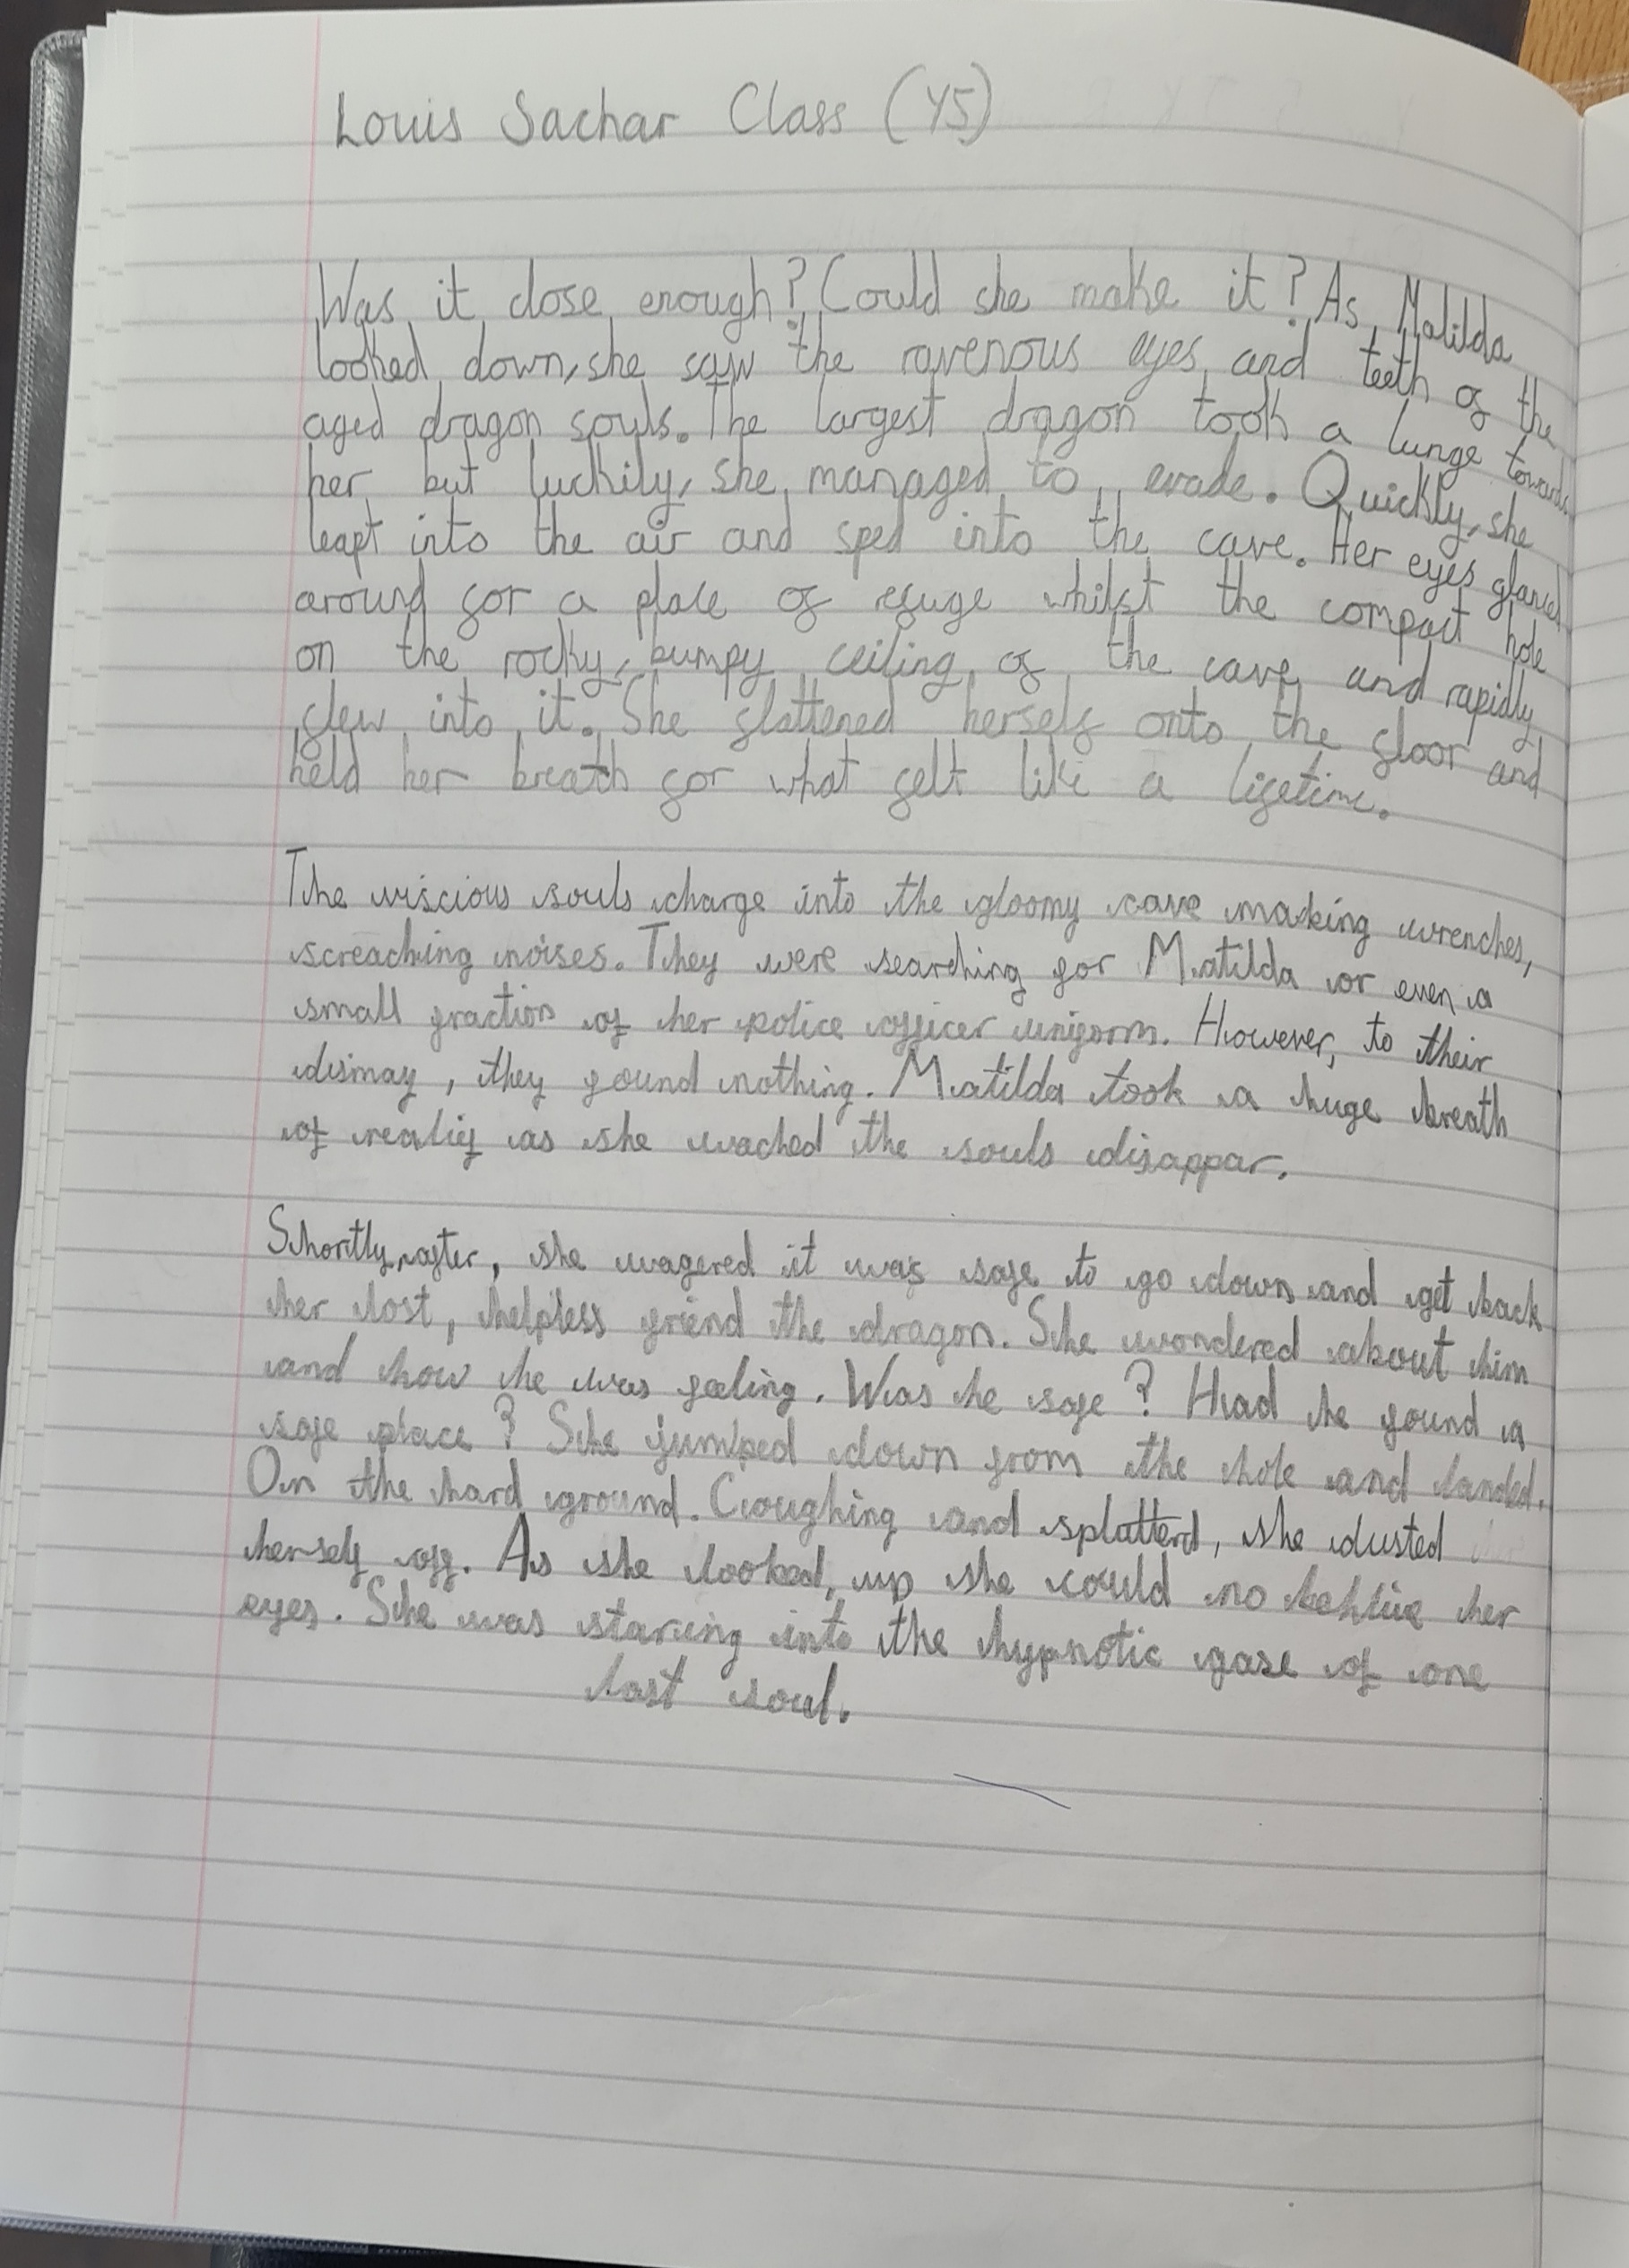 Louis Sachar Class (Y5)
Was it close enough? Could she make it? As Matilda
looked down, she saw the ravenous eyes and teeth of the
aged dragon souls. The largest dragon took a lunge towards
her but luckily, she managed to evade. Quickly, she
leapt into the air and sped into the cave. Her eyes glanced
around for a place of refuge whilst the compact hole
on the rocky, bumpy ceiling of the cave and rapidly
flew into it. She flattened herself onto the floor and
held her breath for what felt like a lifetime.
The viscious souls charge into the gloomy cave making wrenches,
screaching noises. They were searching for Matilda or even a
small fraction of her police officer uniform. However, to their
dismay, they found nothing. Matilda took a huge breath
of realief as she wached the souls disappar.
Schortly after, she wagered it was safe to go down and get back
her lost, helpless friend the dragon. She wondered about him
and how he was feeling. Was he safe? Had he found a
safe place? She jumped down from the hole and landed.
On the hard ground. Coughing and splatterd, she dusted
herself off. As she looked, up she could no behlive her
eyes. She was staring into the hypnotic gase of one
last soul.